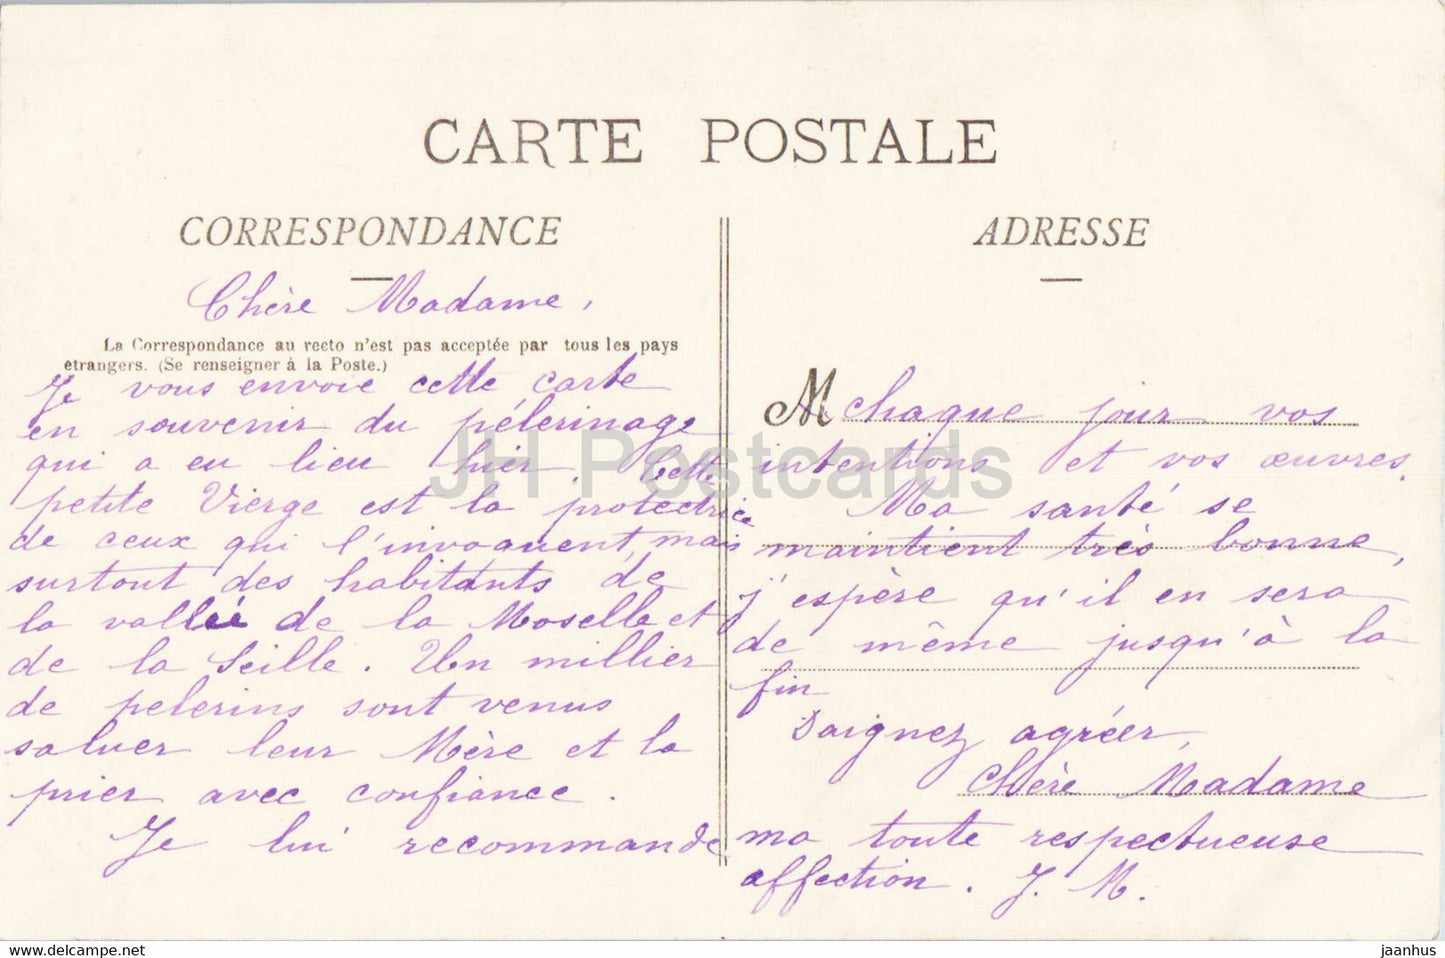 CARTE POSTALE
CORRESPONDANCE
Chère Madame,
La Correspondance au recto n'est pas acceptée par tous les pays
étrangers. (Se renseigner à la Poste.)
Je vous envoie cette carte
en souvenir du pélerinage
qui a eu lieu hier. Cette
petite Vierge est la protectrice
de ceux qui l'invoquent, mais
surtout des habitants de
la vallée de la Moselle et
de la Seille. Un millier
de pelerins sont venus
saluer leur Mère et la
prier avec confiance.
Je lui recommande
ADRESSE
M chaque jour vos
intentions et vos œuvres.
Ma santé se
maintient très bonne,
j'espère qu'il en sera
de même jusqu'à la
fin
Daignez agréer,
Chère Madame
ma toute respectueuse
affection. J. M.
JH Postcards
https://www.delcampe.net
jaanhus